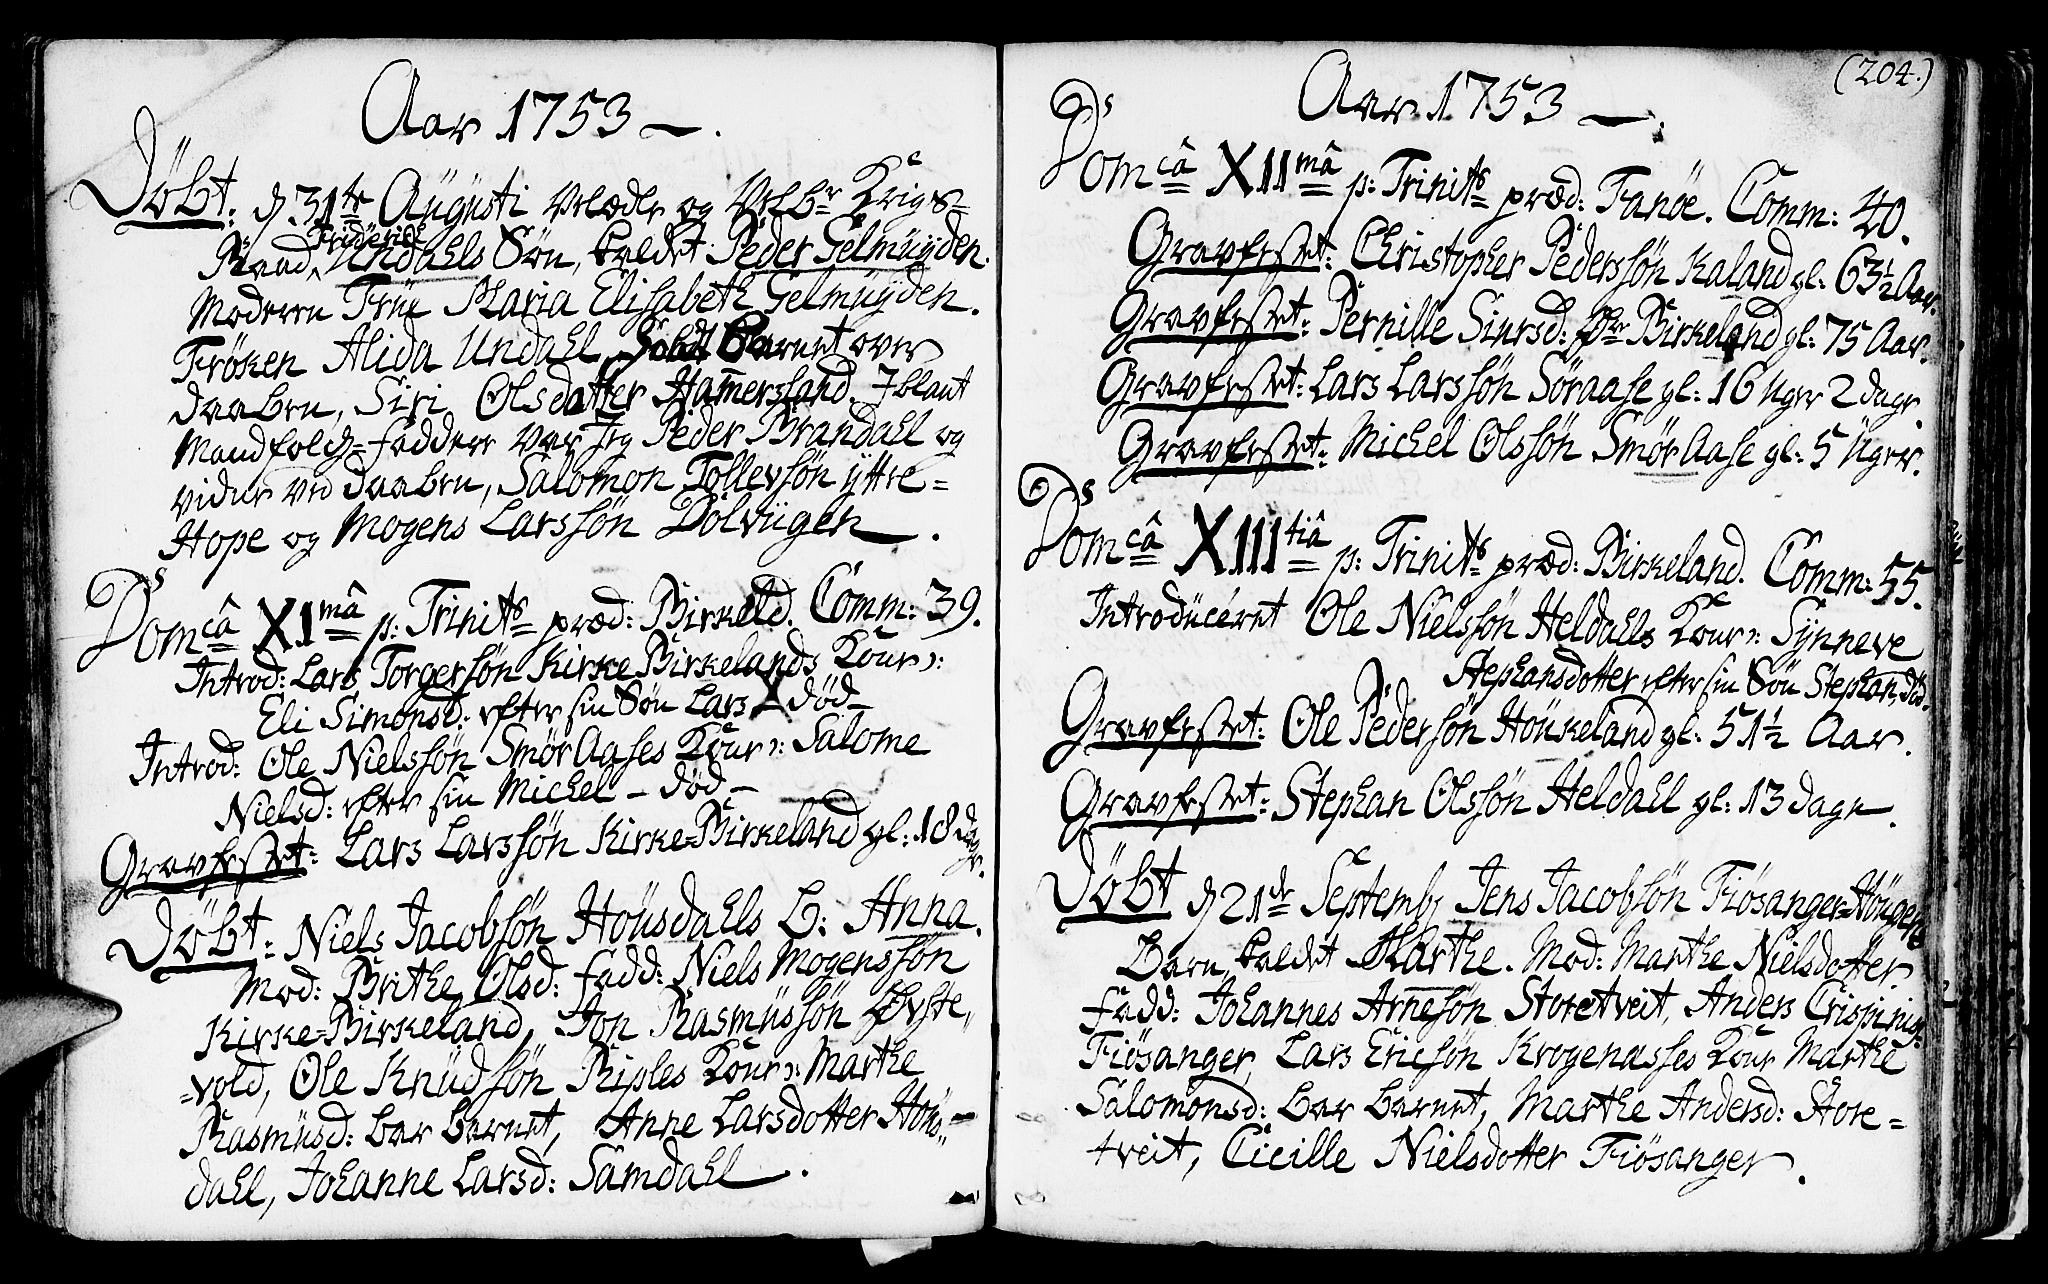 Aar 1753 —.
Döbt: d 31te Augusti Velædle og Velbr Krigs-
Raad, Friderich Undahls Sön, kaldet Peder Gelmuyden.
Moderen Frue Maria Elisabeth Gelmuyden.
Fröken Alida Undahl, holdt Barnet over
daaben, Siri Olsdatter Hamersland. Iblant
Mandfolch-fadderr var Jeg Peder Brandahl og
viduer ved daaben, Salomon Tollevsön yttre-
Hope og Mogens Larssön Dolviigen.
Ds
Domcâ XImâ p: Trinits præd: Birkeld. Comm: 39.
Introd: Lars Torgersön Kirke Birkelands Kone:
Eli Simonsd: efter sin Sön Lars — död —
Introd: Ole Nielssön SmörAases Kone: Salome
Nielsd: efter sin Michel — död —
Gravfestet: Lars Larssön Kirke-Birkeland gl: 18 dage.
Döbt: Niels Jacobsön Housdahls B: Anna.
Mod: Brithe Olsd: fadd: Niels Mogenssön
Kirke-Birkeland, Jon Rasmussön Öfste,,
-vold, Ole Knudsön Riples Kone: Marthe
Rasmusd: bar barnet, Anne Larsdotter Hous,,
dahl, Johanne Larsd: Samdahl.
(204.)
Aar 1753 —.
Ds
Domcâ XIImâ p: Trinits præd: Fanöe. Comm: 40.
Gravfestet: Christopher Pederssön Kaland gl: 63½ Aar.
Gravfestet: Pernille Siursd: Birkeland gl: 75 Aar.
Gravfestet: Lars Larssön Söraase gl: 16 Uger 2 dage.
Gravfestet: Michel Olssön SmörAase gl: 5 Uger.
Ds
Domcâ XIIItiâ p: Trinits præd: Birkeland. Comm: 55.
Introduceret Ole Nielssön Heldahls Kone: Synneve
Stephansdotter efter sin Sön Stephan, död.
Gravfestet: Ole Pedersön Houkeland gl: 51½ Aar.
Gravfestet: Stephan Olssön Heldahl gl: 13 dage.
Döbt d 21de Septembr Jens Jacobsön Fiösanger-Hougens
Barn, kaldet Marthe. Mod: Marthe Nielsdotter
fadd: Johannes Arnesön Storetveit, Anders Crispinis:
Fiösanger, Lars Ericsön Krogenasses Kone Marthe
Salomonsd: bar barnet, Marthe Andersd: Store-
tveit, Cicille Nielsdotter Fiösanger.